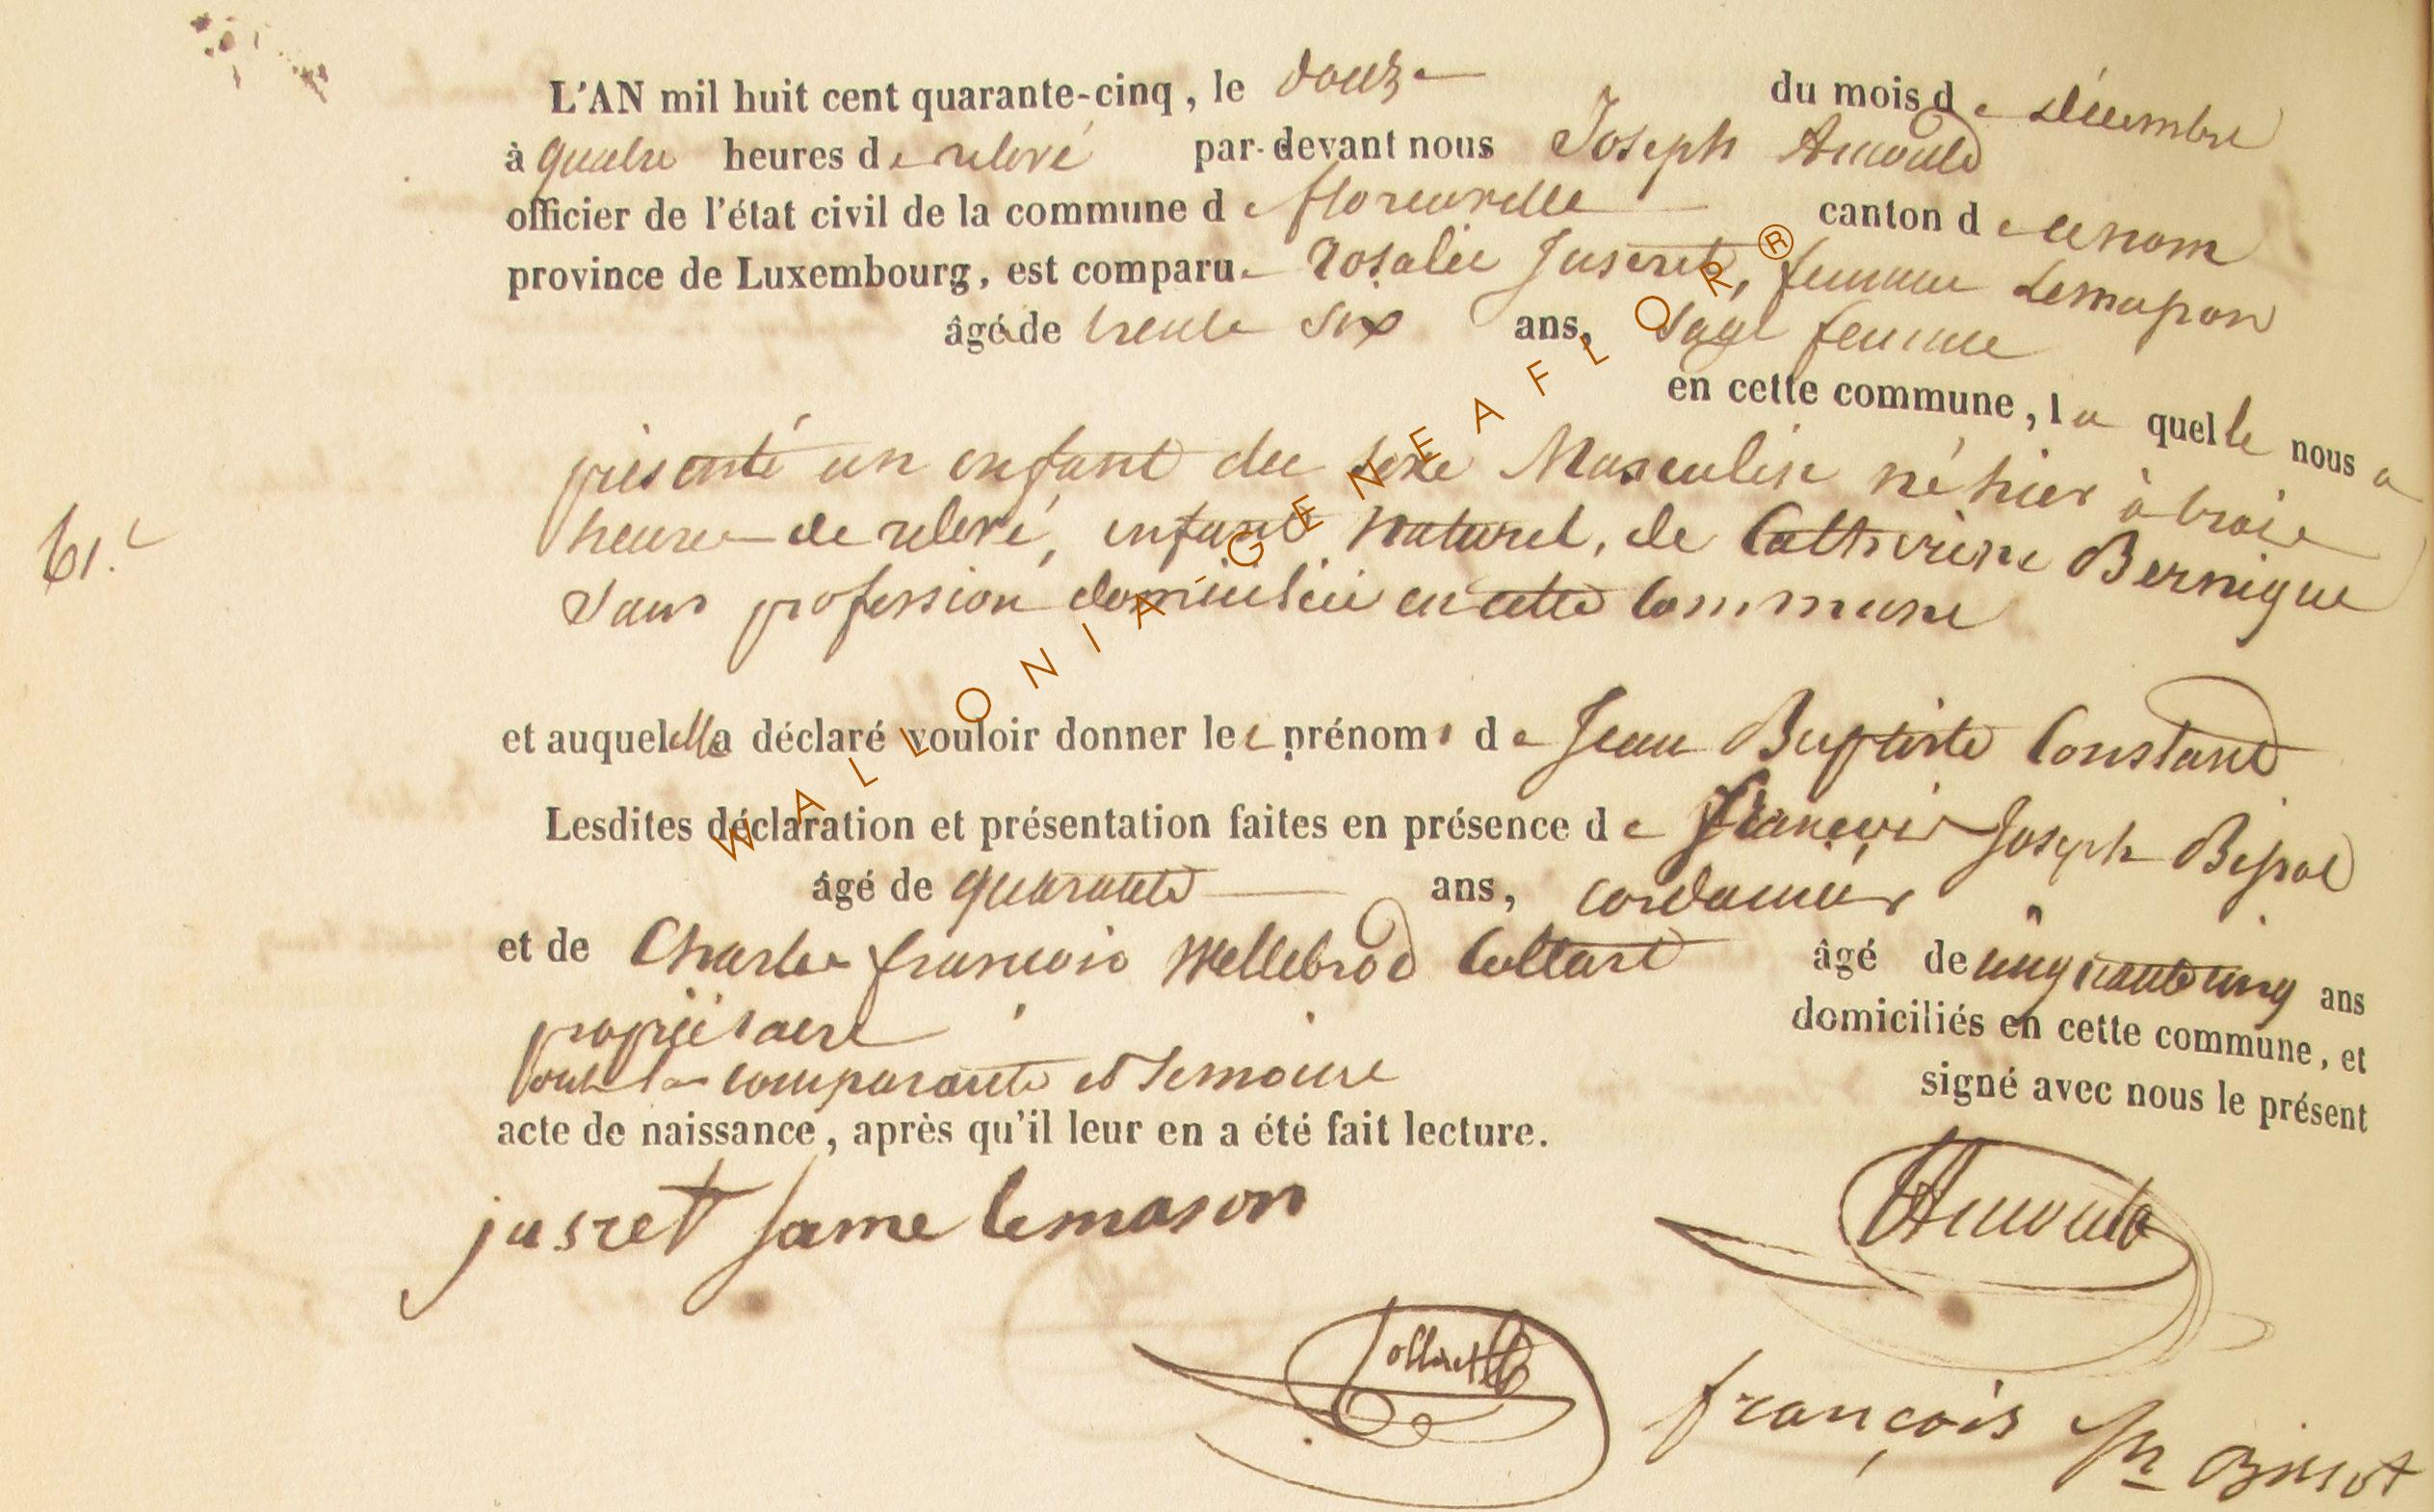 L'AN mil huit cent quarante-cinq, le douze du mois de décembre
à quatre heures de relevé par-devant nous Joseph Arnould
officier de l'état civil de la commune de florenville canton de ce nom
province de Luxembourg, est comparue Rosalie Jusseret, femme Lemason
âgée de trente six ans, Sage femme
en cette commune, laquelle nous a
présenté un enfant du sexe Masculin né hier à trois
61.e heures de relevé, enfant Naturel, de Catherine Bernique
Sans profession domiciliée en cette Commune
et auquel elle a déclaré vouloir donner les prénoms de Jean Baptiste Constant
Lesdites déclaration et présentation faites en présence de François Joseph
âgé de quarante ans, cordonnier
et de Charles françois Wellebrod Collart âgé de cinquante cinq ans
propriétaire domiciliés en cette commune, et
ont la comparante et témoins signé avec nous le présent
acte de naissance, après qu'il leur en a été fait lecture.
jusret fame lemason
Arnould
Collart
françois
WALLONIA-GENEAFLOR®